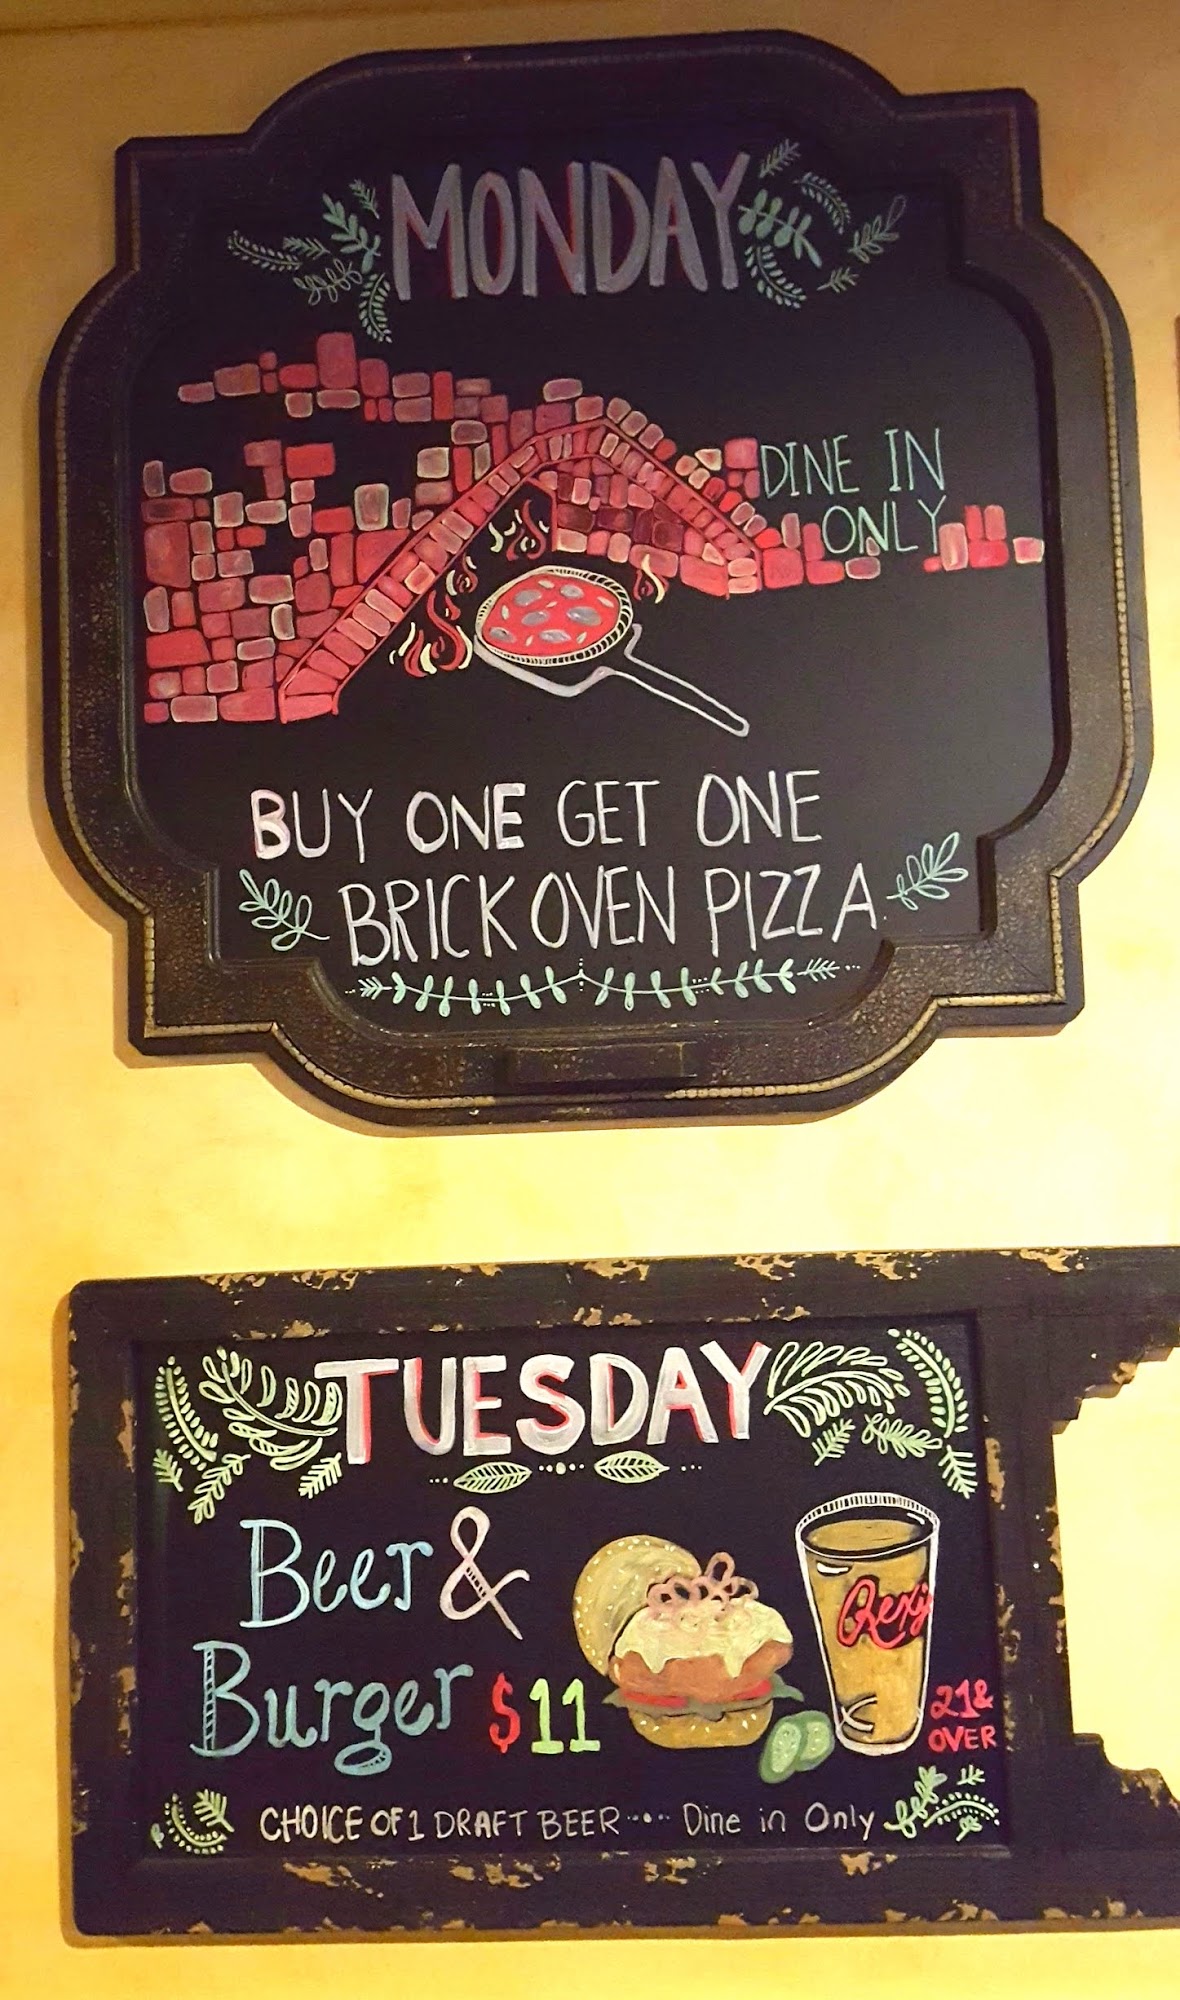 MONDAY
DINE IN
ONLY
BUY ONE GET ONE
BRICK OVEN PIZZA
TUESDAY
Beer &
Burger $11
Rexy
21&
OVER
CHOICE OF 1 DRAFT BEER ···· Dine in Only